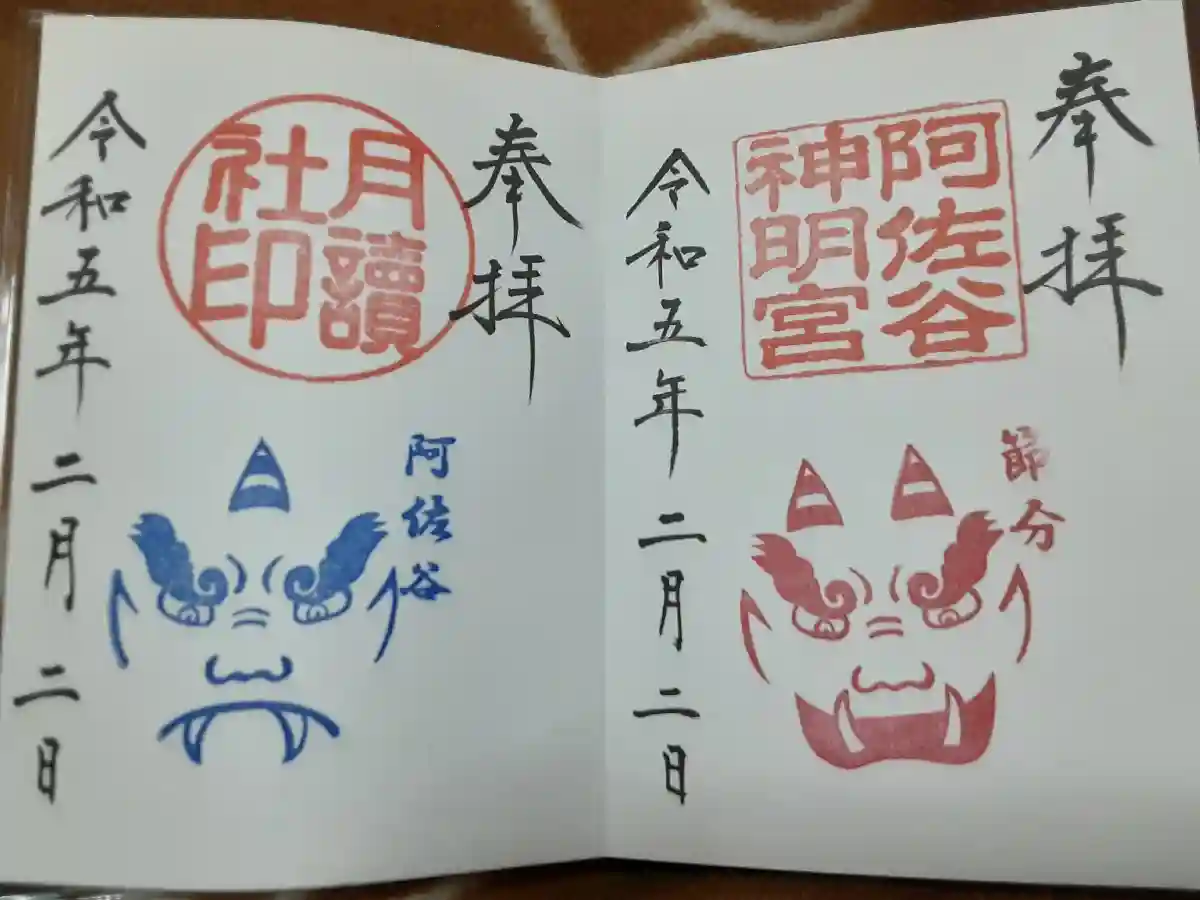 奉拝
阿佐谷
神明宮
節分
令和五年二月二日
奉拝
月讀
社印
阿佐谷
令和五年二月二日